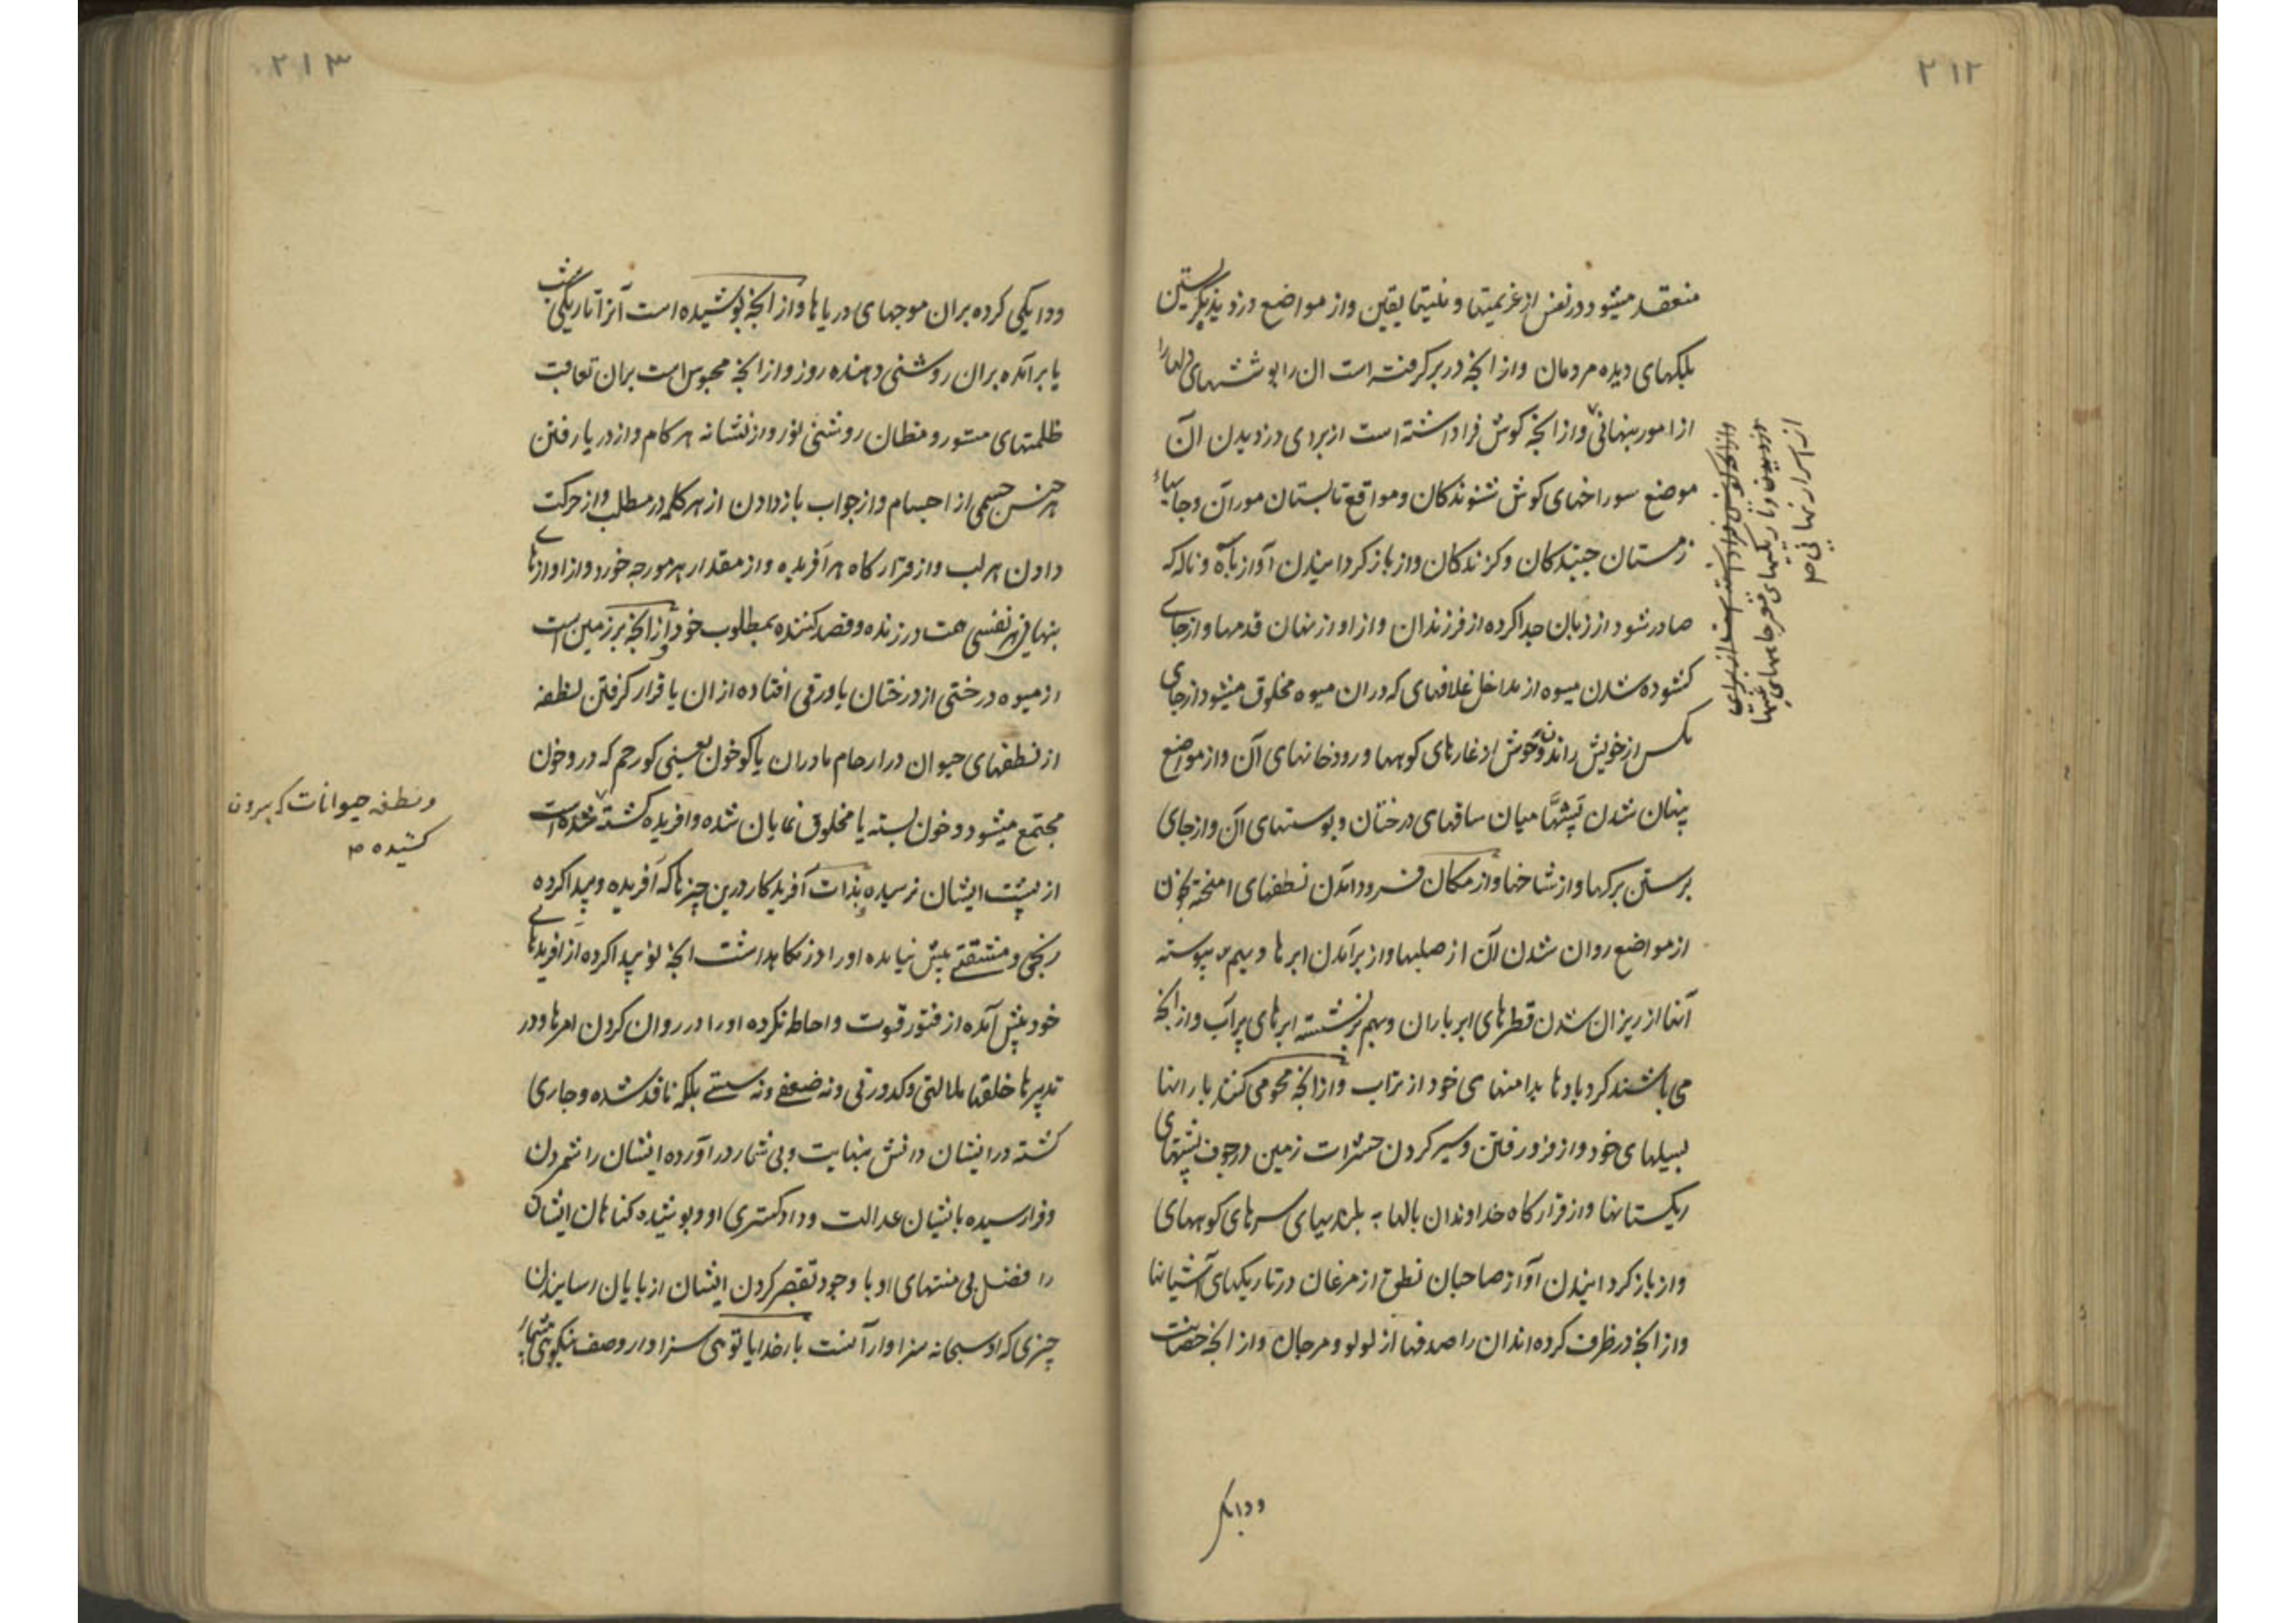 ۲۱۲
منعقد میشود در نفس از غزیمتها و نیتها یقین واز مواضع دزدیده نگریستن
پلکهای دیده مردمان واز انجه در بر کرفته است ان را پوششهای دلها را
از امور پنهانی واز انجه کوش فرا داشته است از برای دزدیدن آن
موضع سوراخهای کوش شنوندکان ومواقع تابستان موران وجایهاء
زمستان جنبندکان وکزندکان واز باز کردانیدن آواز بآه وناله که
صادر شود از زنان جدا کرده از فرزندان واز اواز نهان قدمها واز جای
کشوده شدن میوه از مداخل غلافهای که دران میوه مخلوق میشود از جای
کس از خویش رانده وحوش از غارهای کوهها و رودخانهای آن واز مواضع
پنهان شدن پشها میان ساقهای درختان و پوستهای آن واز جای
برستن برکها واز شاخها واز مکان فرود امدن نطفهای امیخته بخون
از مواضع روان شدن آن از صلبها واز برآمدن ابرها و بهم پیوسته
آنها از ریزان شدن قطرهای ابر باران وبهم بر نشسته ابرهای پر آب واز انجه
می پاشند کرد بادها بدامنهای خود از تراب واز انجه محو می کنند بارانها
بسیلهای خود واز فرو رفتن وسیر کردن حشرات زمین در جوف پشتهای
ریکستانها واز قرار کاه خداوندان بالها به بلندیهای سرهای کوههای
واز باز کردانیدن آواز صاحبان نطق از مرغان در تاریکیهای آشیانها
واز انجه در ظرف کرده اند ان را صدفها از لولو ومرجان واز انجه حضانت
از اسرار نهانی
ودایکی
۲۱۳
ودایکی کرده بران موجهای دریاها واز انجه پوشیده است آنرا تاریکی شب
یا برآمده بران روشنی دهنده روز واز انجه محبوس است بران تعاقب
ظلمتهای مستور ومظان روشنی نور واز نشانه هر کام واز دریافتن
هر حس جسمی از اجسام واز جواب باز دادن از هر کلمه در مطلب واز حرکت
دادن هر لب واز قرار کاه هر آفریده واز مقدار هر مورچه خورد واز اوازهای
پنهانی هر نفسی همت ورزنده وقصد کننده بمطلوب خود واز انجه بر زمین است
از میوه درختی از درختان یا ورقی افتاده از ان یا قرار کرفتن نطفه
از نطفهای حیوان در ارحام مادران یا کو خون یعنی کو رحم که درو خون
مجتمع میشود و خون بسته یا مخلوق نمایان شده وافریده کشته شده است
از پشت ایشان نرسیده بذات آفریدکار درین چیزها که آفریده وپیدا کرده
رنجی ومشقتی پیش نیامده اورا در نکاهداشت انجه نو پیدا کرده از افریدهای
خود پیش آمده از فتور قوت واحاطه نکرده اورا در روان کردن امرها ودر
تدبیرها خلقها ملالتی وکدورتی ونه ضعفی ونه سستی بلکه نافذ شده وجاری
کشته در ایشان دانش بغایت وبی شمار در آورده ایشان را شمردن
وفرا رسیده بایشان عدالت وداد کستری او وپوشیده کناهان ایشان
را فضل بی منتهای او با وجود تقصیر کردن ایشان از پایان رسانیدن
چیزی که او سبحانه سزاوار آنست بار خدایا توئی سزاوار وصف نیکوئی
ونطفه حیوانات که بیرون
کشیده